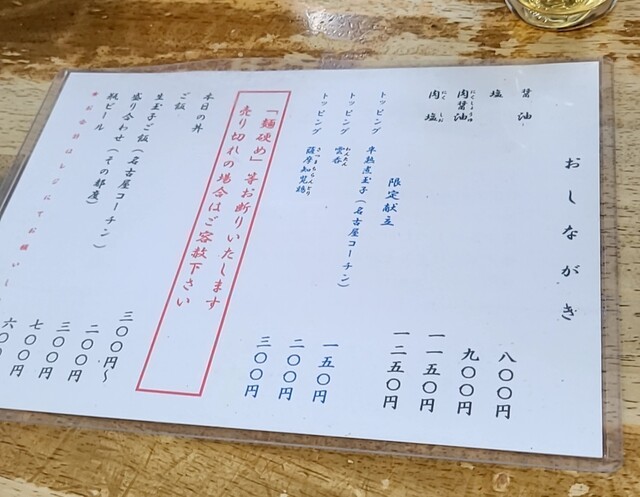 おしながき
醤油 八〇〇円
塩 九〇〇円
肉醤油 一一五〇円
にくしょうゆ
肉塩 一二五〇円
にく しお
限定献立
トッピング 半熟煮玉子（名古屋コーチン） 一五〇円
トッピング 雲呑 二〇〇円
わんたん
トッピング 薩摩知覧鶏 三〇〇円
さつまちらんどり
「麺硬め」等お断りいたします
売り切れの場合はご容赦下さい
本日の丼 三〇〇円〜
ご飯 二〇〇円
生玉子ご飯（名古屋コーチン） 三〇〇円
盛り合わせ（その都度） 七〇〇円
瓶ビール 六〇〇
＊お会計はレジにてお願いし